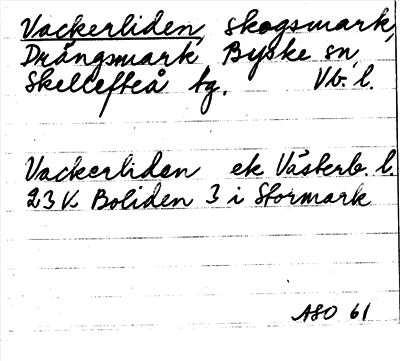 Vackerliden, skogsmark,
Drängsmark Byske sn,
Skellefteå tg. Vb. l.
Vackerliden ek Västerb. l.
23 K Boliden 3 i Stormark
ASO 61